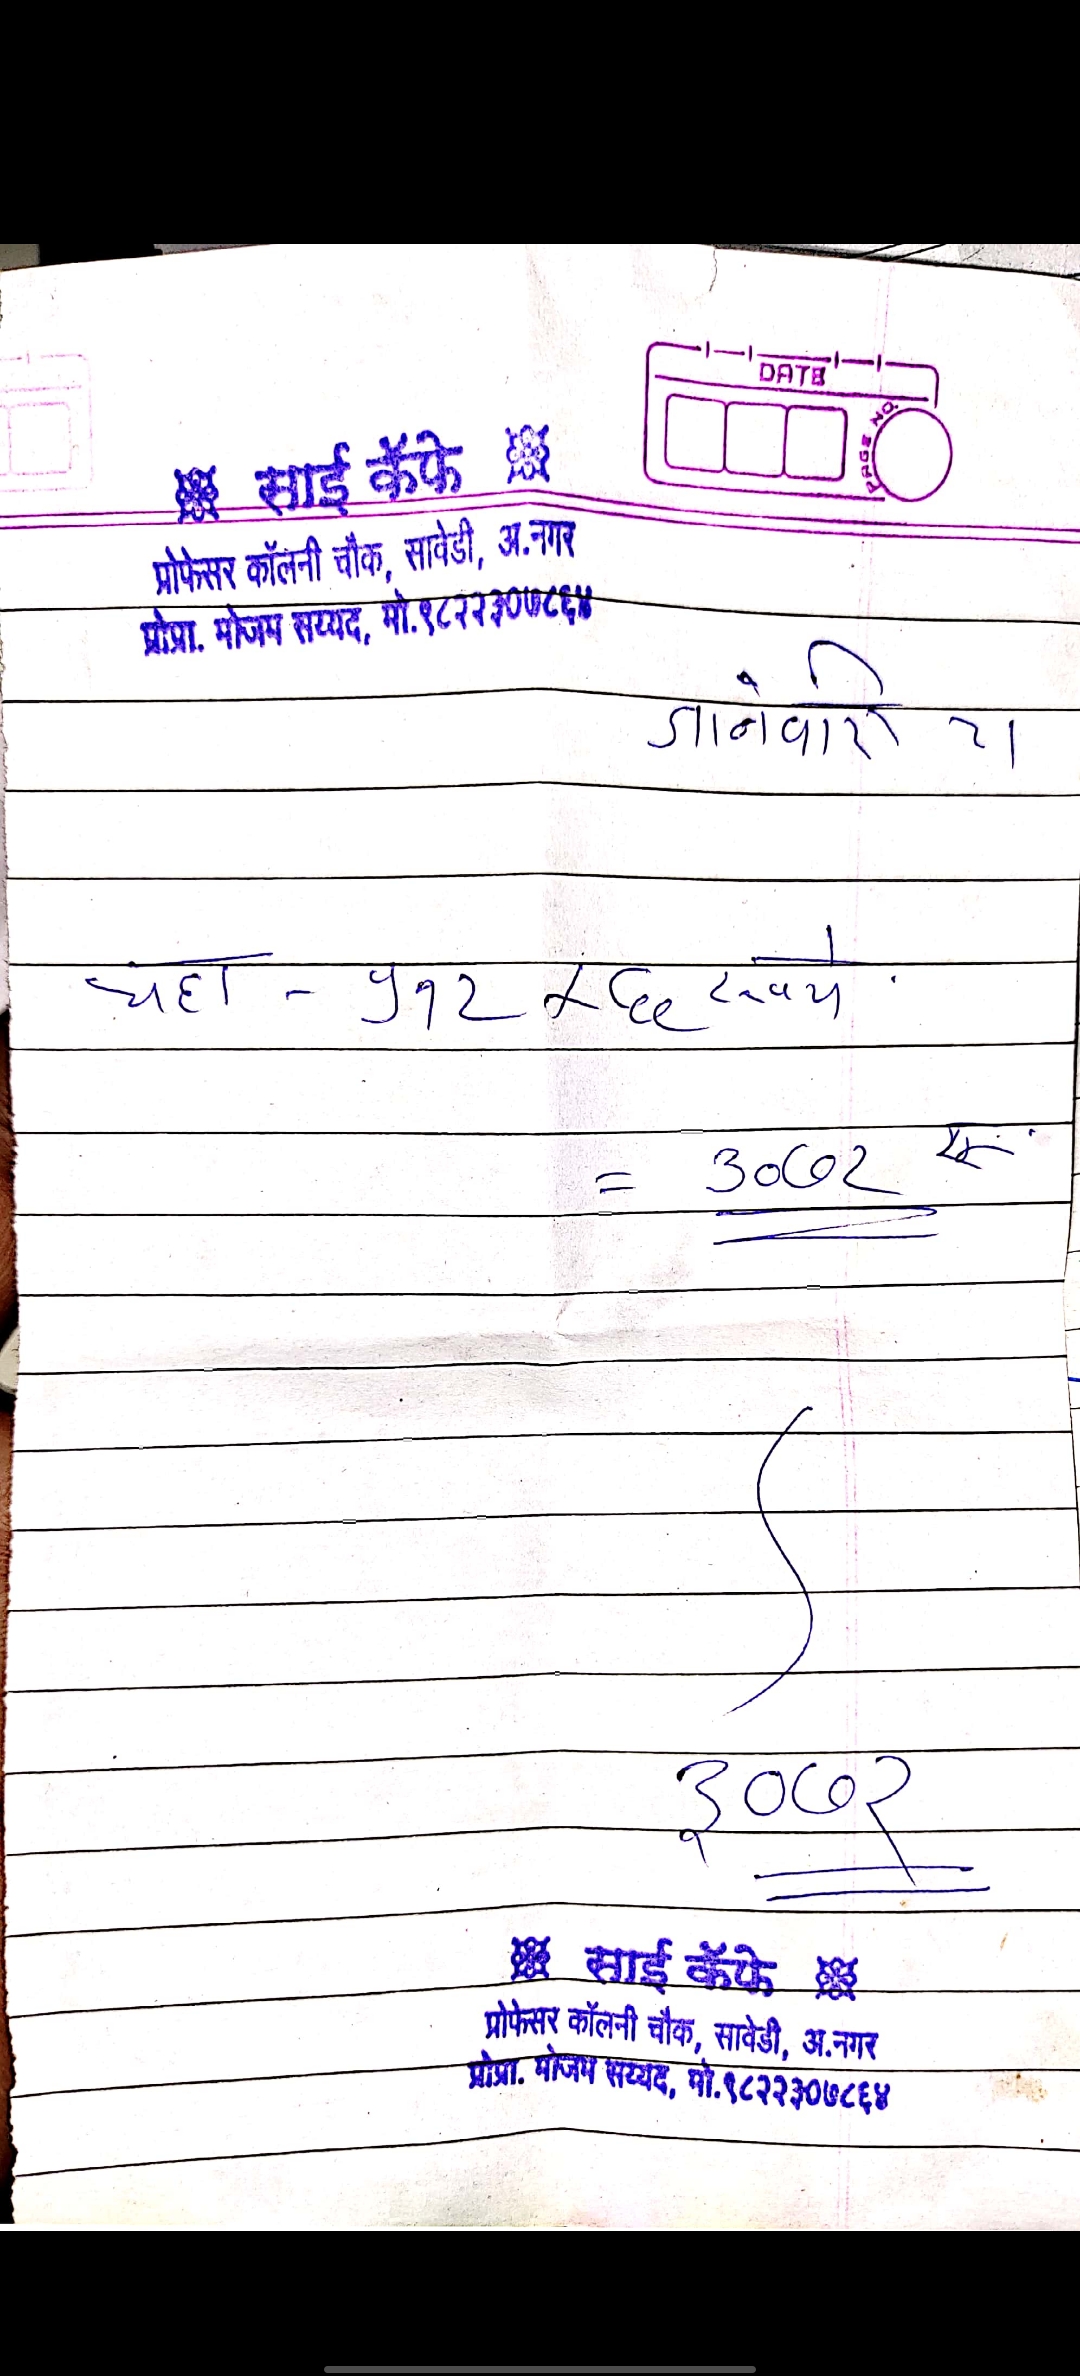 साई कॅफे
DATE
PAGE NO.
प्रोफेसर कॉलनी चौक, सावेडी, अ.नगर
प्रोप्रा. मोजम सय्यद, मो.९८२२३०७८६४
जानेवारी २१
चहा - ५१२
= ३०७२ रु.
३०७२
साई कॅफे
प्रोफेसर कॉलनी चौक, सावेडी, अ.नगर
प्रोप्रा. मोजम सय्यद, मो.९८२२३०७८६४